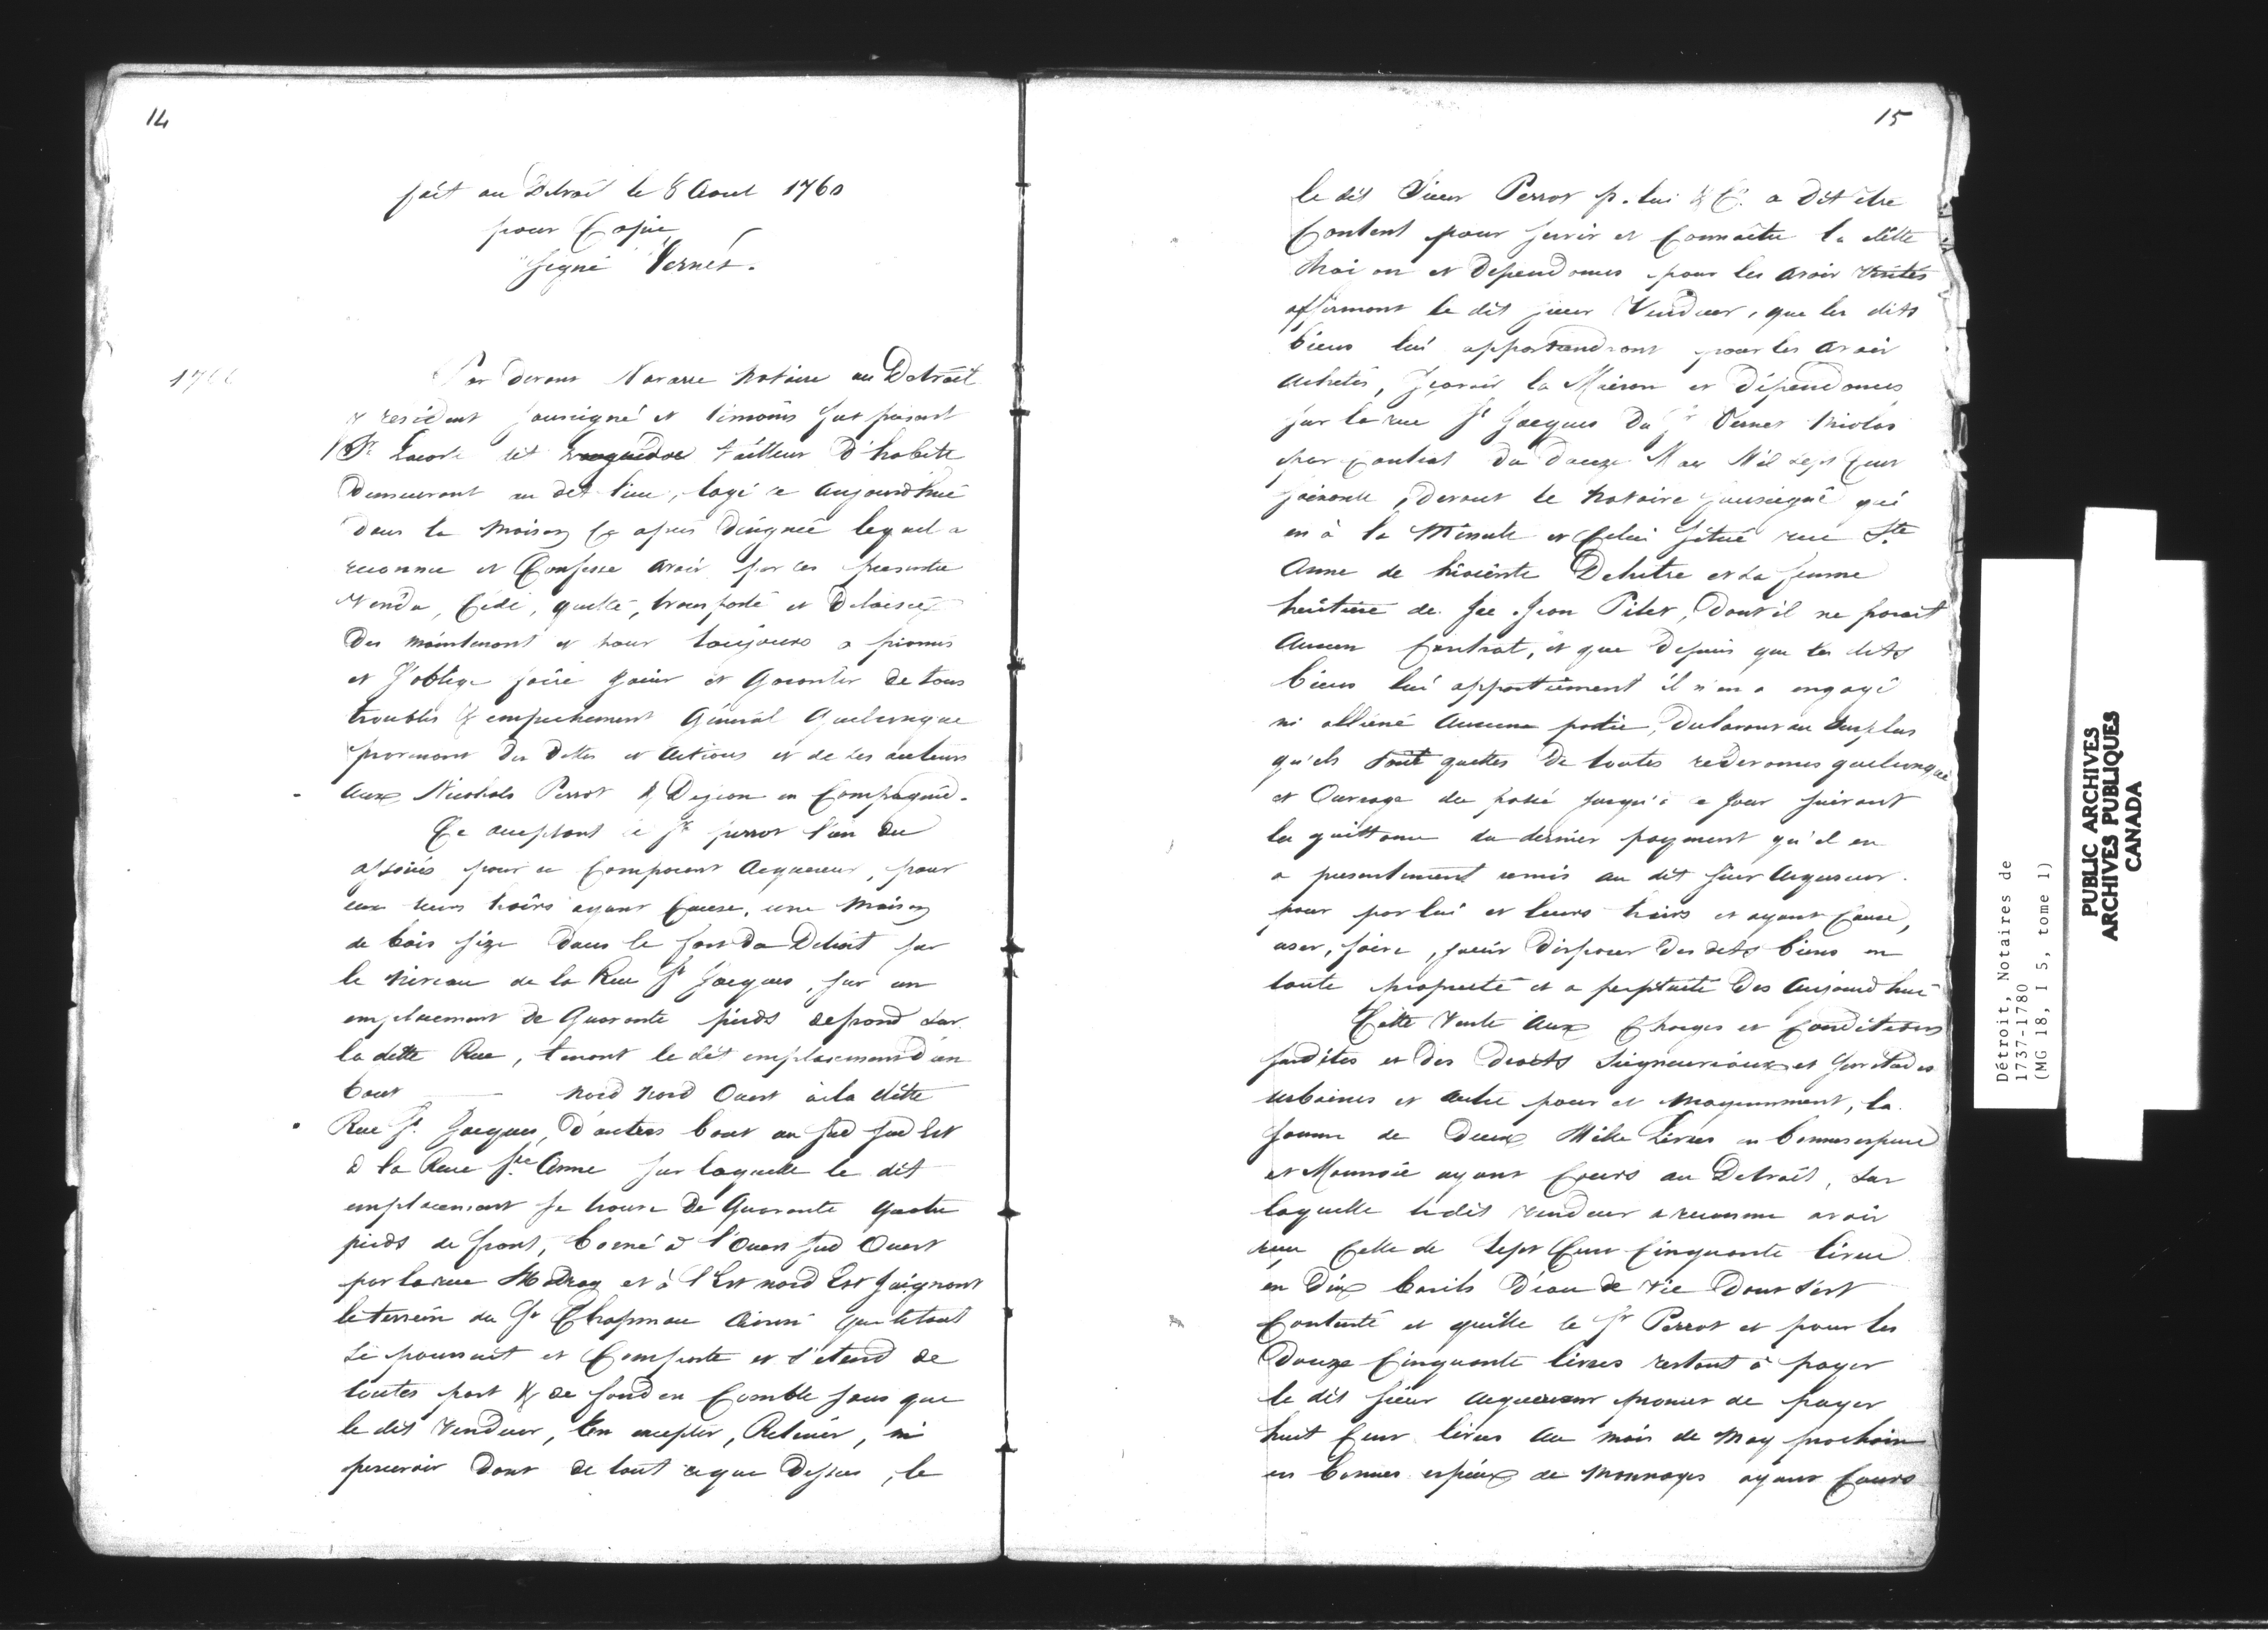 14
fait au Detroit le 8 Aout 1760
pour Copie
signé Vernet.
1760
Par devant Navarre Notaire au Detroit
y resident soussigné et temoins fut présent
Sr Lacoste dit tailleur d'habits
Demeurant au dit lieu, logé ce aujourdhui
dans la Maison Cy apres lequel a
reconnu et Confesse avoir par ces presentes
Vendu, Cédé, quitté, transporté et Delaissé
Des maintenant et pour toujours a promis
et s'oblige faire jouir et garantir de tous
troubles & empechement Général Quelconque
provenant des dettes et actions et de ses auteurs
Aux Nicolas Perrot & Dejean en Compagnie.
Ce acceptant le Sr perrot l'un des
associés pour ce Comparant Acquereur, pour
eux leurs hoirs ayant Cause, une Maison
de bois size Dans le fort du Detroit sur
le niveau de la Rue St Jacques, sur un
emplacement de Quarante pieds de front sur
la ditte Rue, tenant le dit emplacement d'un
bout nord nord Ouest à la ditte
Rue St. Jacques, d'autres bout au sud sud Est
à la Rue Ste Anne sur laquelle le dit
emplacement se trouve de Quarante quatre
pieds de front, borné à l'Ouest sud Ouest
par la rue et à l'Est nord Est joignant
le terrein du Sr Chapman Ainsi que le tout
se poursuit et Comporte et s'etend de
toutes part & de fond en Comble sans que
le dit Vendeur, en excepter, Retenir, ni
percevoir dont de tout ce que Dessus, le
15
le dit Sieur Perrot p. lui & C. a Dit être
Content pour servir et Connaître la ditte
Maison et dependances pour les avoir visités
affirmant le dit sieur Vendeur, que les dits
biens lui appartiendront pour les avoir
achetés, sçavoir la Maison et Dépendances
sur la rue St Jacques du Sr Vernet
par Contrat du Douze Mil Sept Cent
soixante, devant le Notaire soussigné qui
en à la Minute et Celui situé rue Ste
Anne de Deluttre et sa femme
heritiere de feu Jean Pilet, Dont il ne parait
Aucun Contrat, et que Depuis que les dits
biens lui appartiennent il n'en a engagé
ni alliéné Aucune partie, Declarant au Surplus
qu'ils sont quittes De toutes redevances quelconque
et Ouvrage du passé jusqu'à ce jour suivant
la quittance du dernier payment qu'il en
a presentement remis au dit sieur Acquereur.
pour par lui et leurs hoirs et ayant Cause,
user, faire, jouir Disposer des dits biens en
toute proprieté et a perptuité Des Aujourdhui
Cette Vente Aux Charges et Conditions
susdites et Des Droits Seigneuriaux et servitudes
urbaines et autre pour et Moyennment, la
somme de Deux Mille Livres en bonnes espece
et Monnoie ayant Cours au Detroit, sur
laquelle ledit vendeur a reconnu avoir
reçu Celle de Sept Cent Cinquante livres
en Dix barils D'eau de vie dont s'est
Contenté et quitte le Sr Perrot et pour les
Douze Cinquante livres restant à payer
le dit sieur acquereur promet de payer
huit Cent livres Au mois de May prochain
en bonnes espéces de Monnoyes ayant Cours
Détroit, Notaires de
1737-1780
(MG 18, I 5, tome 1)
PUBLIC ARCHIVES
ARCHIVES PUBLIQUES
CANADA